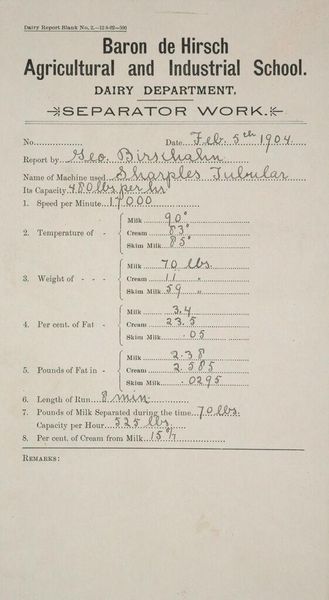 Dairy Report Blank No. 2.—12-8-02—500
Baron de Hirsch
Agricultural and Industrial School.
DAIRY DEPARTMENT.
SEPARATOR WORK.
No. Date Feb. 5th 1904
Report by Geo. Birschahn
Name of Machine used Sharples Tubular
Its Capacity 480 lbs per hr
1. Speed per Minute 17000
2. Temperature of - Milk 90°
Cream 83°
Skim Milk 85°
3. Weight of - - - Milk 70 lbs.
Cream 11 "
Skim Milk 59 "
4. Per cent. of Fat - Milk 3.4
Cream 23.5
Skim Milk .05
5. Pounds of Fat in - Milk 2.38
Cream 2.585
Skim Milk .0295
6. Length of Run 8 min.
7. Pounds of Milk Separated during the time 70 lbs.
Capacity per Hour 525 lbs.
8. Per cent. of Cream from Milk 15 5/7
REMARKS: